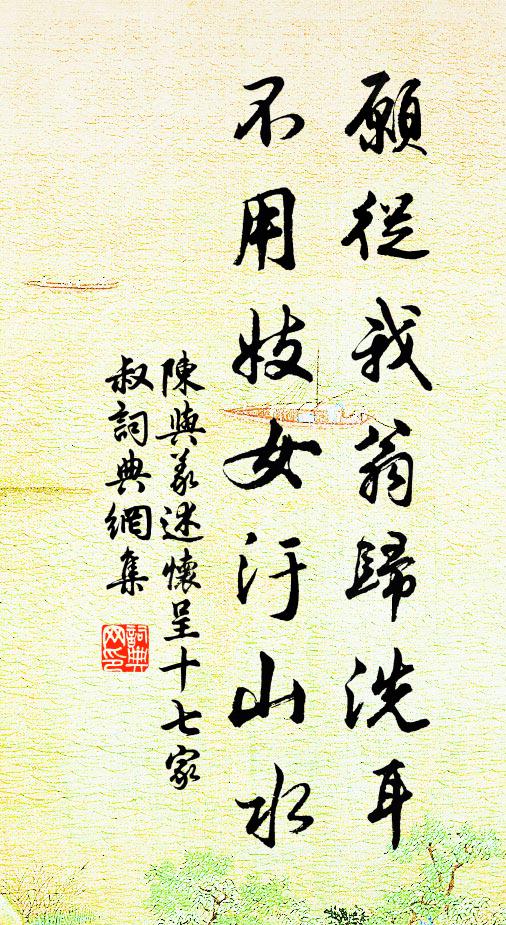 願從我翁歸洗耳
不用妓女汙山水
陳與義述懷呈十七家
叔詞典網集
詞典网印